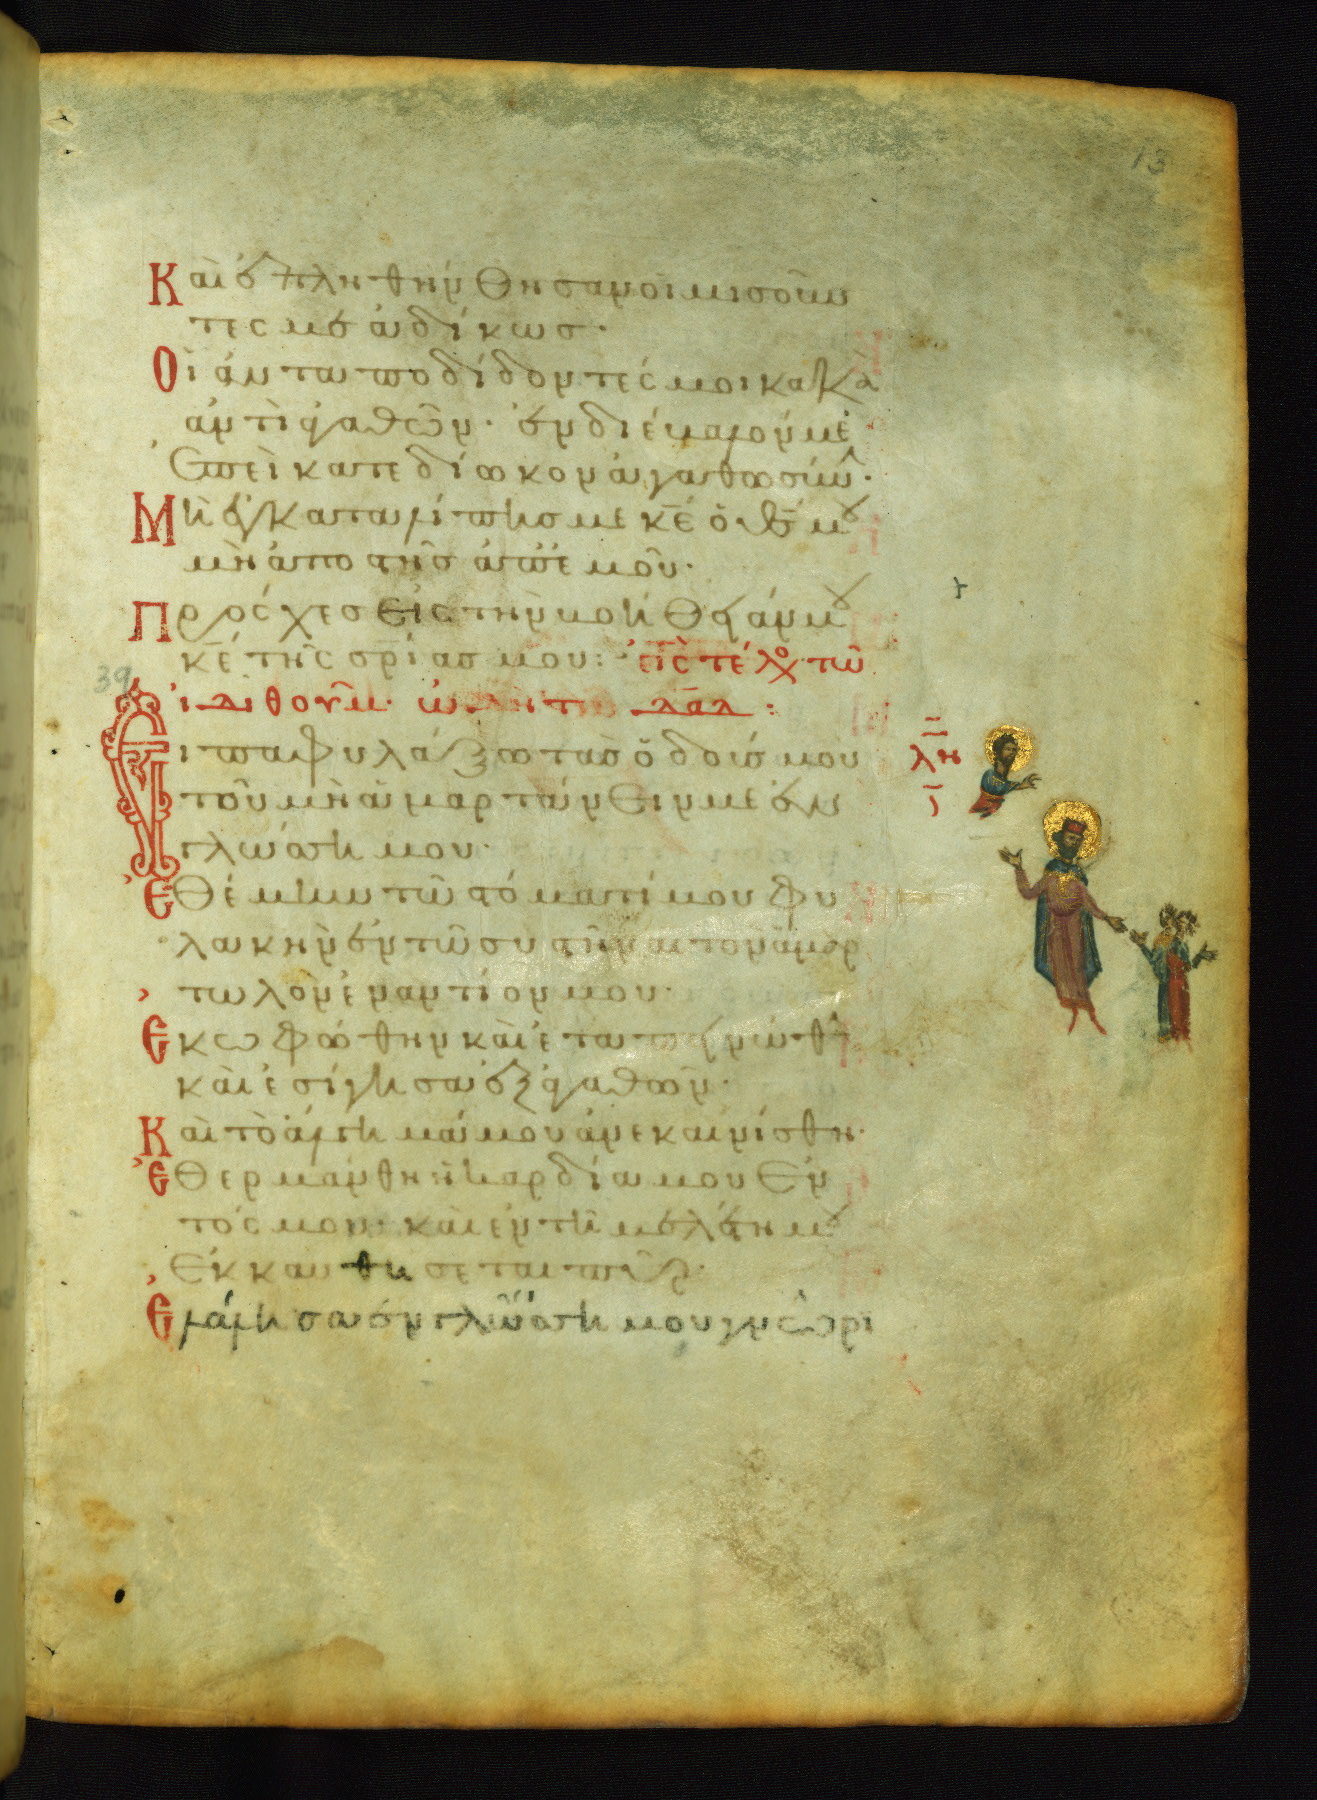 13
Καὶ ἐπληθύνθησαν οἱ μισοῦν
τες με ἀδίκως·
Οἱ ἀνταποδίδοντές μοι κακὰ
ἀντὶ ἀγαθῶν· ἐνδιέβαλόν με
Ἐπεὶ κατεδίωκον ἀγαθωσύνην·
Μὴ ἐγκαταλίπῃς με κ̅ε̅ ὁ θ̅ς̅ μου
μὴ ἀποστῇς ἀπ' ἐμοῦ·
Πρόσχες εἰς τὴν βοήθειάν μου
κ̅ε̅ τῆς σ̅ρ̅ι̅ας μου: εἰς τέλος τῶ
39
ἰδιθούμ· ὠδὴ τῶ δ̅α̅δ̅:
Εἶπα φυλάξω τὰς ὁδούς μου
τοῦ μὴ ἁμαρτάνειν με ἐν
γλώσσῃ μου·
λη
Ἐθέμην τῶ στόματί μου φυ
λακὴν ἐν τῶ συστῆναι τὸν ἁμαρ
τωλὸν ἐναντίον μου·
Ἐκωφώθην καὶ ἐταπεινώθην
καὶ ἐσίγησα ἐξ ἀγαθῶν·
Καὶ τὸ ἄλγημά μου ἀνεκαινίσθη·
Ἐθερμάνθη ἡ καρδία μου ἐν
τός μου· καὶ ἐν τῇ μελέτῃ μου
ἐκκαυθήσεται πῦρ·
Ἐλάλησα ἐν γλώσσῃ μου γνώρι